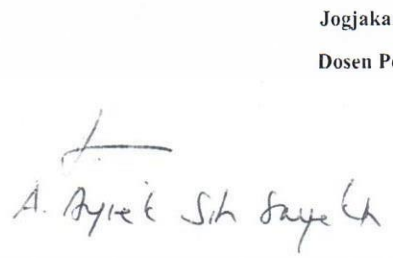 Jogjaka
Dosen Pe
A. Ayiek Sih Sayekti